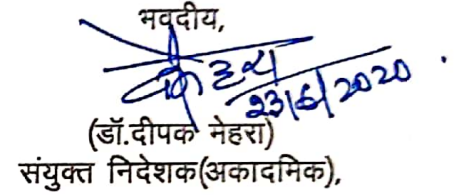 भवदीय,
23/6/2020
(डॉ.दीपक मेहरा)
संयुक्त निदेशक(अकादमिक),